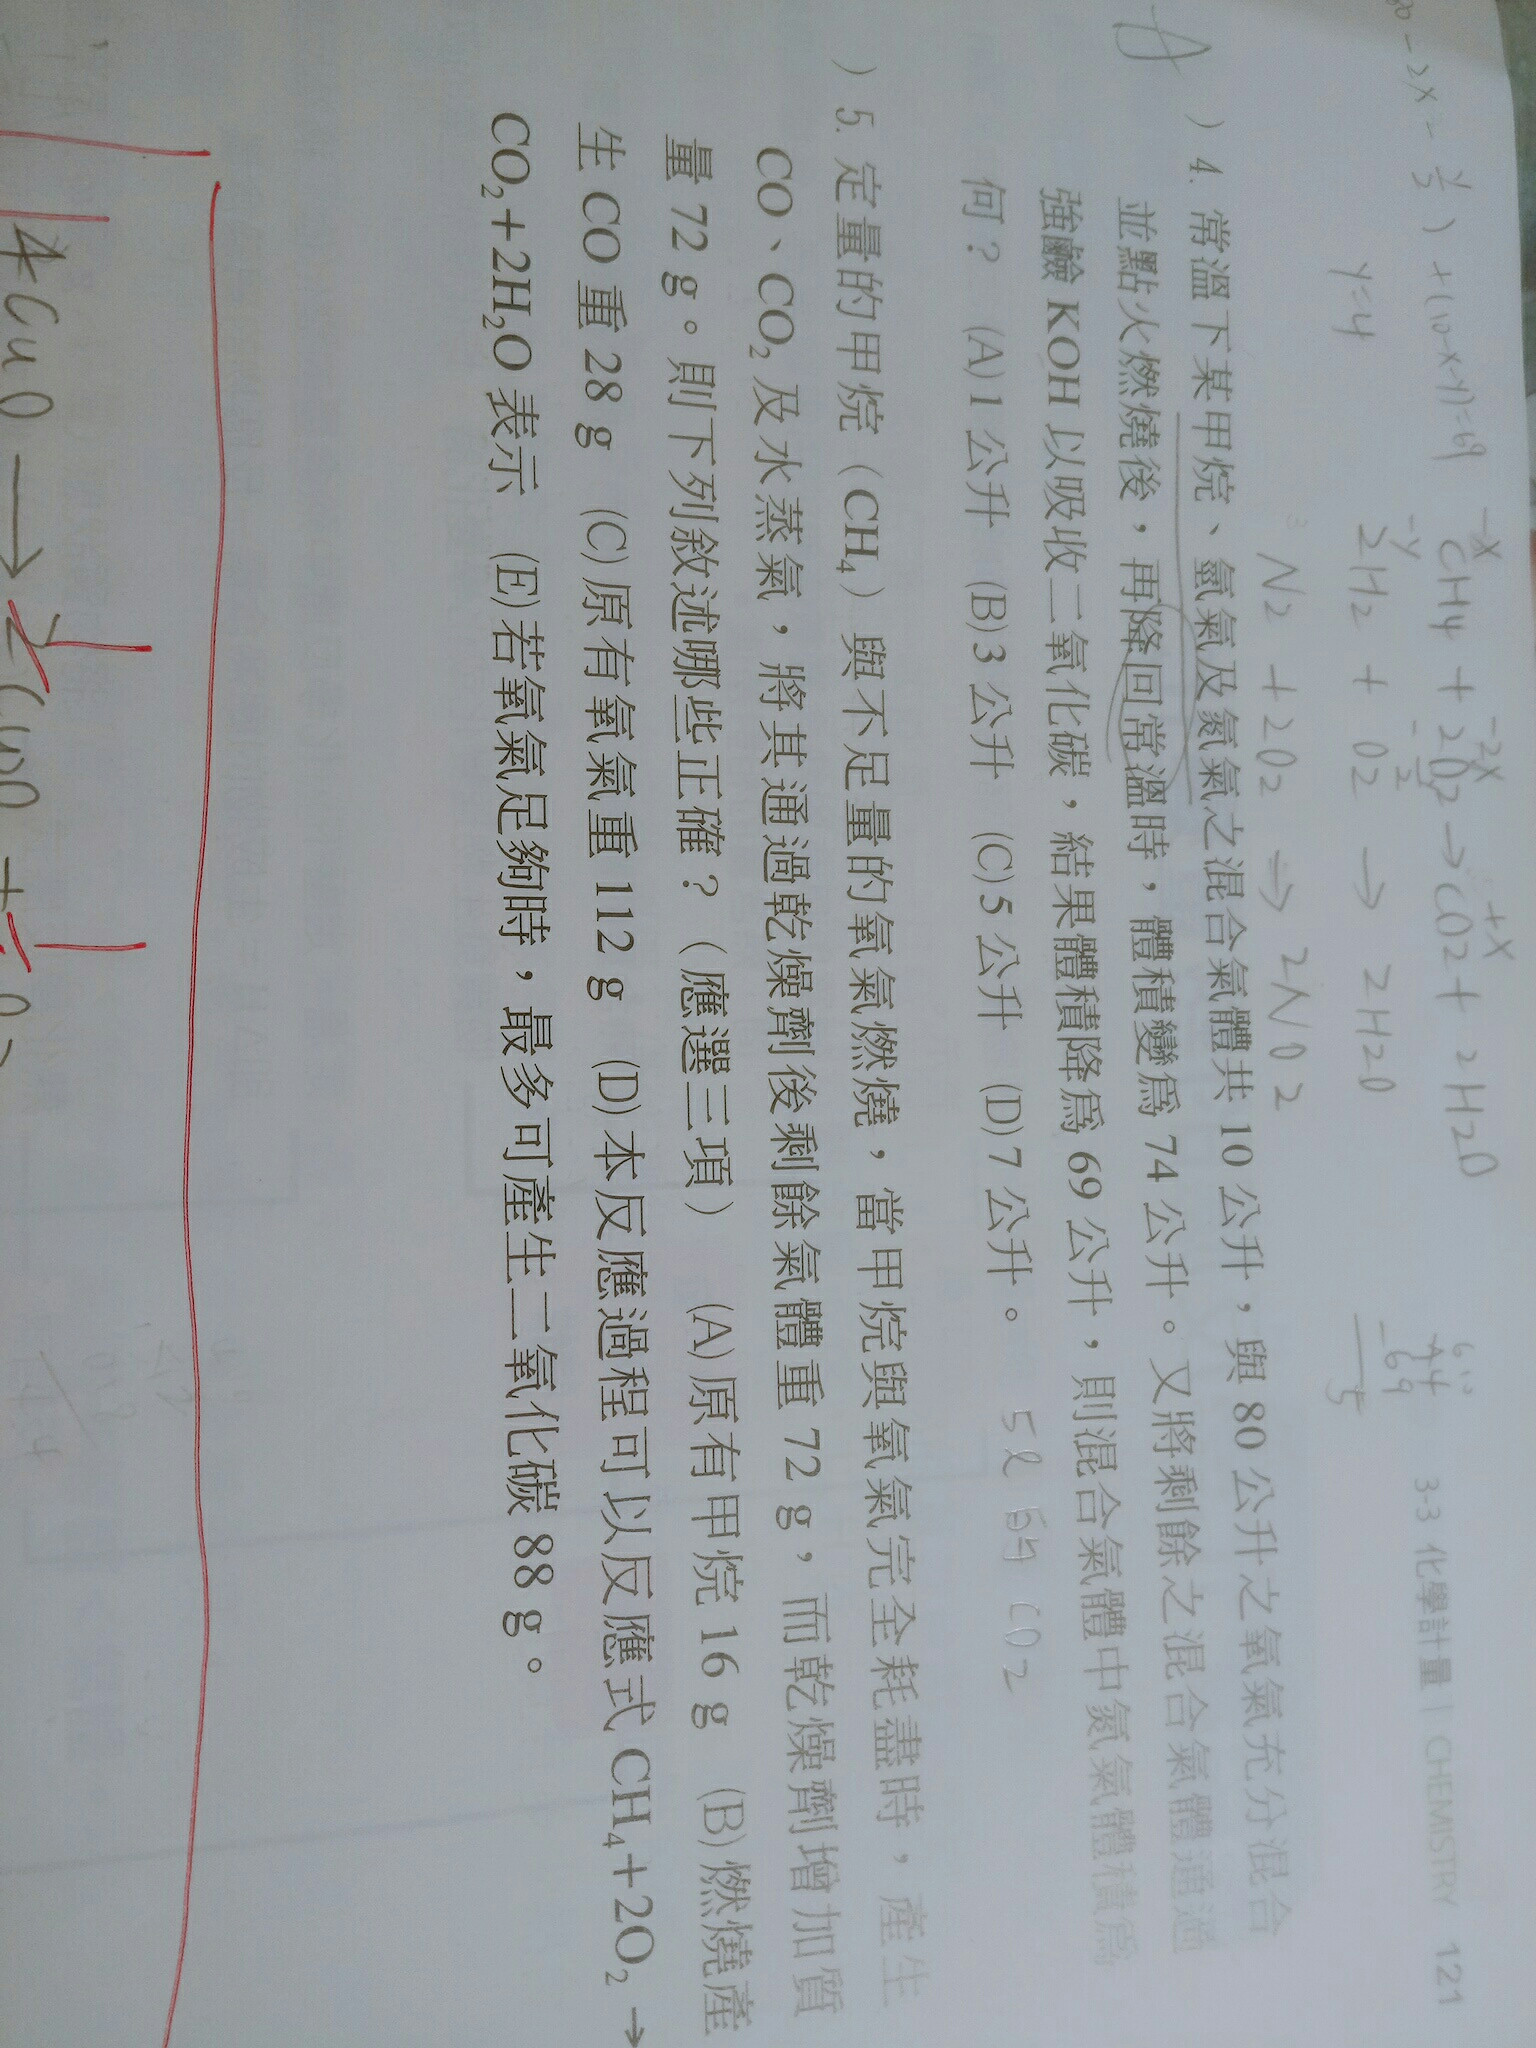 3-3 化學計量 | CHEMISTRY 121
-2x - y/2 ) + (10-x-y) = 69
y=4
-x -2x +x
CH4 + 2O2 → CO2 + 2H2O
-y
2H2 + O2 → 2H2O
N2 + 2O2 → 2NO2
-69
5
A
) 4. 常溫下某甲烷、氫氣及氮氣之混合氣體共 10 公升,與 80 公升之氧氣充分混合
並點火燃燒後,再降回常溫時,體積變為 74 公升。又將剩餘之混合氣體通過
強鹼 KOH 以吸收二氧化碳,結果體積降為 69 公升,則混合氣體中氮氣體積為
何? (A)1 公升 (B)3 公升 (C)5 公升 (D)7 公升。
5l 的 CO2
) 5. 定量的甲烷(CH₄)與不足量的氧氣燃燒,當甲烷與氧氣完全耗盡時,產生
CO、CO₂ 及水蒸氣,將其通過乾燥劑後剩餘氣體重 72 g,而乾燥劑增加質
量 72 g。則下列敘述哪些正確?(應選三項) (A)原有甲烷 16 g (B)燃燒產
生 CO 重 28 g (C)原有氧氣重 112 g (D)本反應過程可以反應式 CH₄+2O₂ →
CO₂+2H₂O 表示 (E)若氧氣足夠時,最多可產生二氧化碳 88 g。
4CuO →